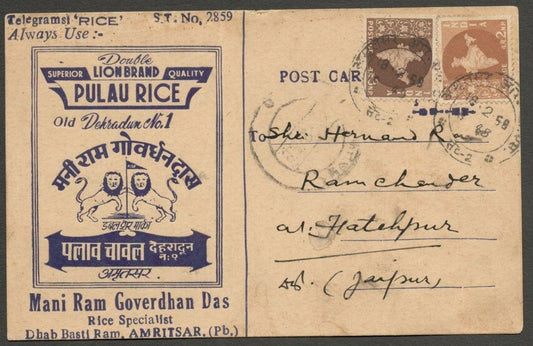 Telegrams: 'RICE' S.T. No, 2859
Always Use :-
Double
SUPERIOR LION BRAND QUALITY
PULAU RICE
Old Dehradun No.1
मनी राम गोवर्धन दास
डबल शेर मार्का
पलाव चावल देहरादून नः१
अमृतसर.
Mani Ram Goverdhan Das
Rice Specialist
Dhab Basti Ram, AMRITSAR. (Pb.)
POST CAR
To
Ramchender
at. Fatehpur
(Jaipur)